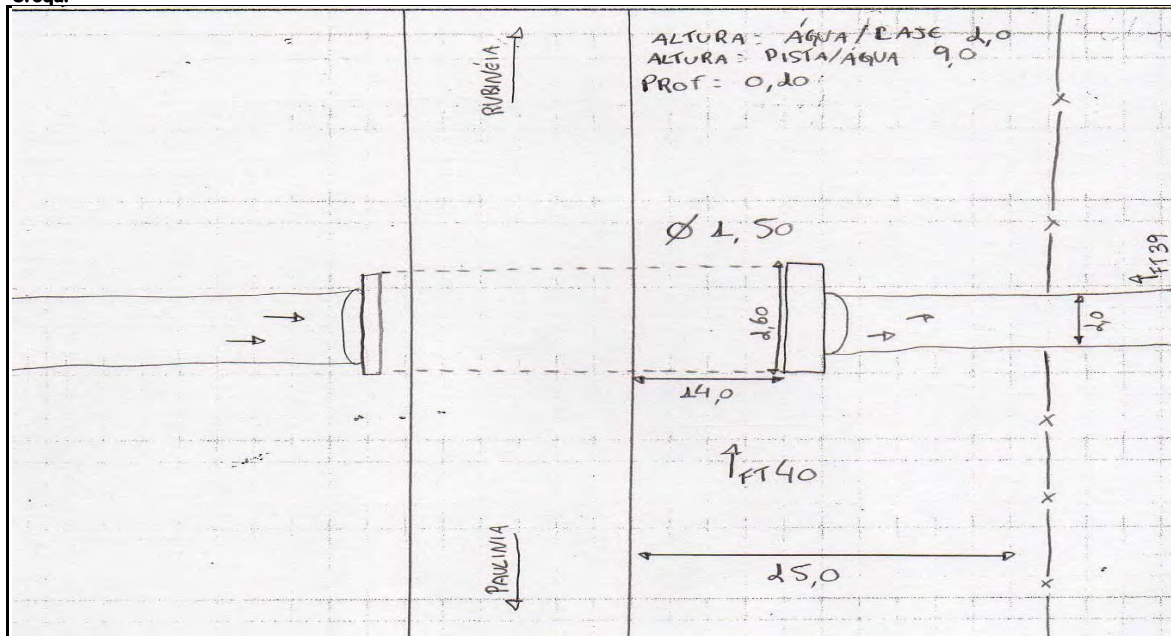 Croqui
ALTURA: ÁGUA/LAJE 2,0
ALTURA: PISTA/ÁGUA 9,0
PROF = 0,20
RUBINÉIA
Ø 1,50
FT39
2,60
2,0
14,0
FT40
PAULINIA
25,0